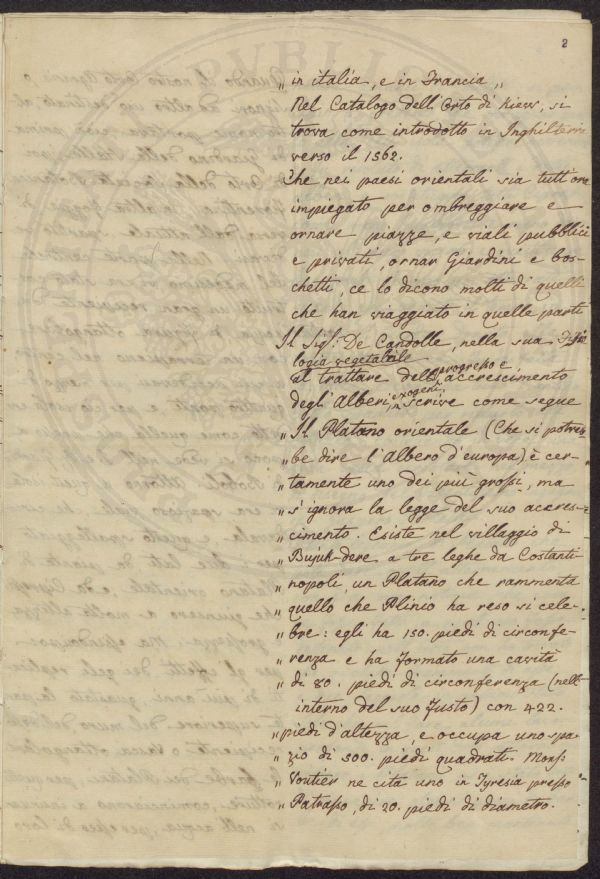 2
„ in italia, e in Francia „
Nel Catalogo dell'Orto di Kiew, si
trova come introdotto in Inghilterra
verso il 1562.
Che nei paesi orientali sia tutt'ora
impiegato per ombreggiare e
ornare piazze, e viali pubblici
e privati, ornar Giardini e bos-
chetti, ce lo dicono molti di quelli
che han viaggiato in quelle parti
Il Sigr. De Candolle, nella sua Fisio
logia vegetabile
al trattare dell' progresso e accrescimento
degli Alberi exogeni scrive come segue
„ Il Platano orientale (Che si potreb
„ be dire l'Albero d'europa) è cer-
„ tamente uno dei più grossi, ma
„ s'ignora la legge del suo accres-
„ cimento. Esiste nel villaggio di
„ Bujuk-dere a tre leghe da Costanti
„ nopoli, un Platano che rammenta
„ quello che Plinio ha reso si cele-
„ bre: egli ha 150. piedi di circonfe-
„ renza e ha formato una cavità
„ di 80. piedi di circonferenza (nell'
„ interno del suo fusto) con 422.
„ piedi d'altezza, e occupa uno spa
„ zio di 500. piedi quadrati. Monsr.
„ Voutier ne cita uno in Tyresia presso
„ Patrasso, di 20. piedi di diametro.